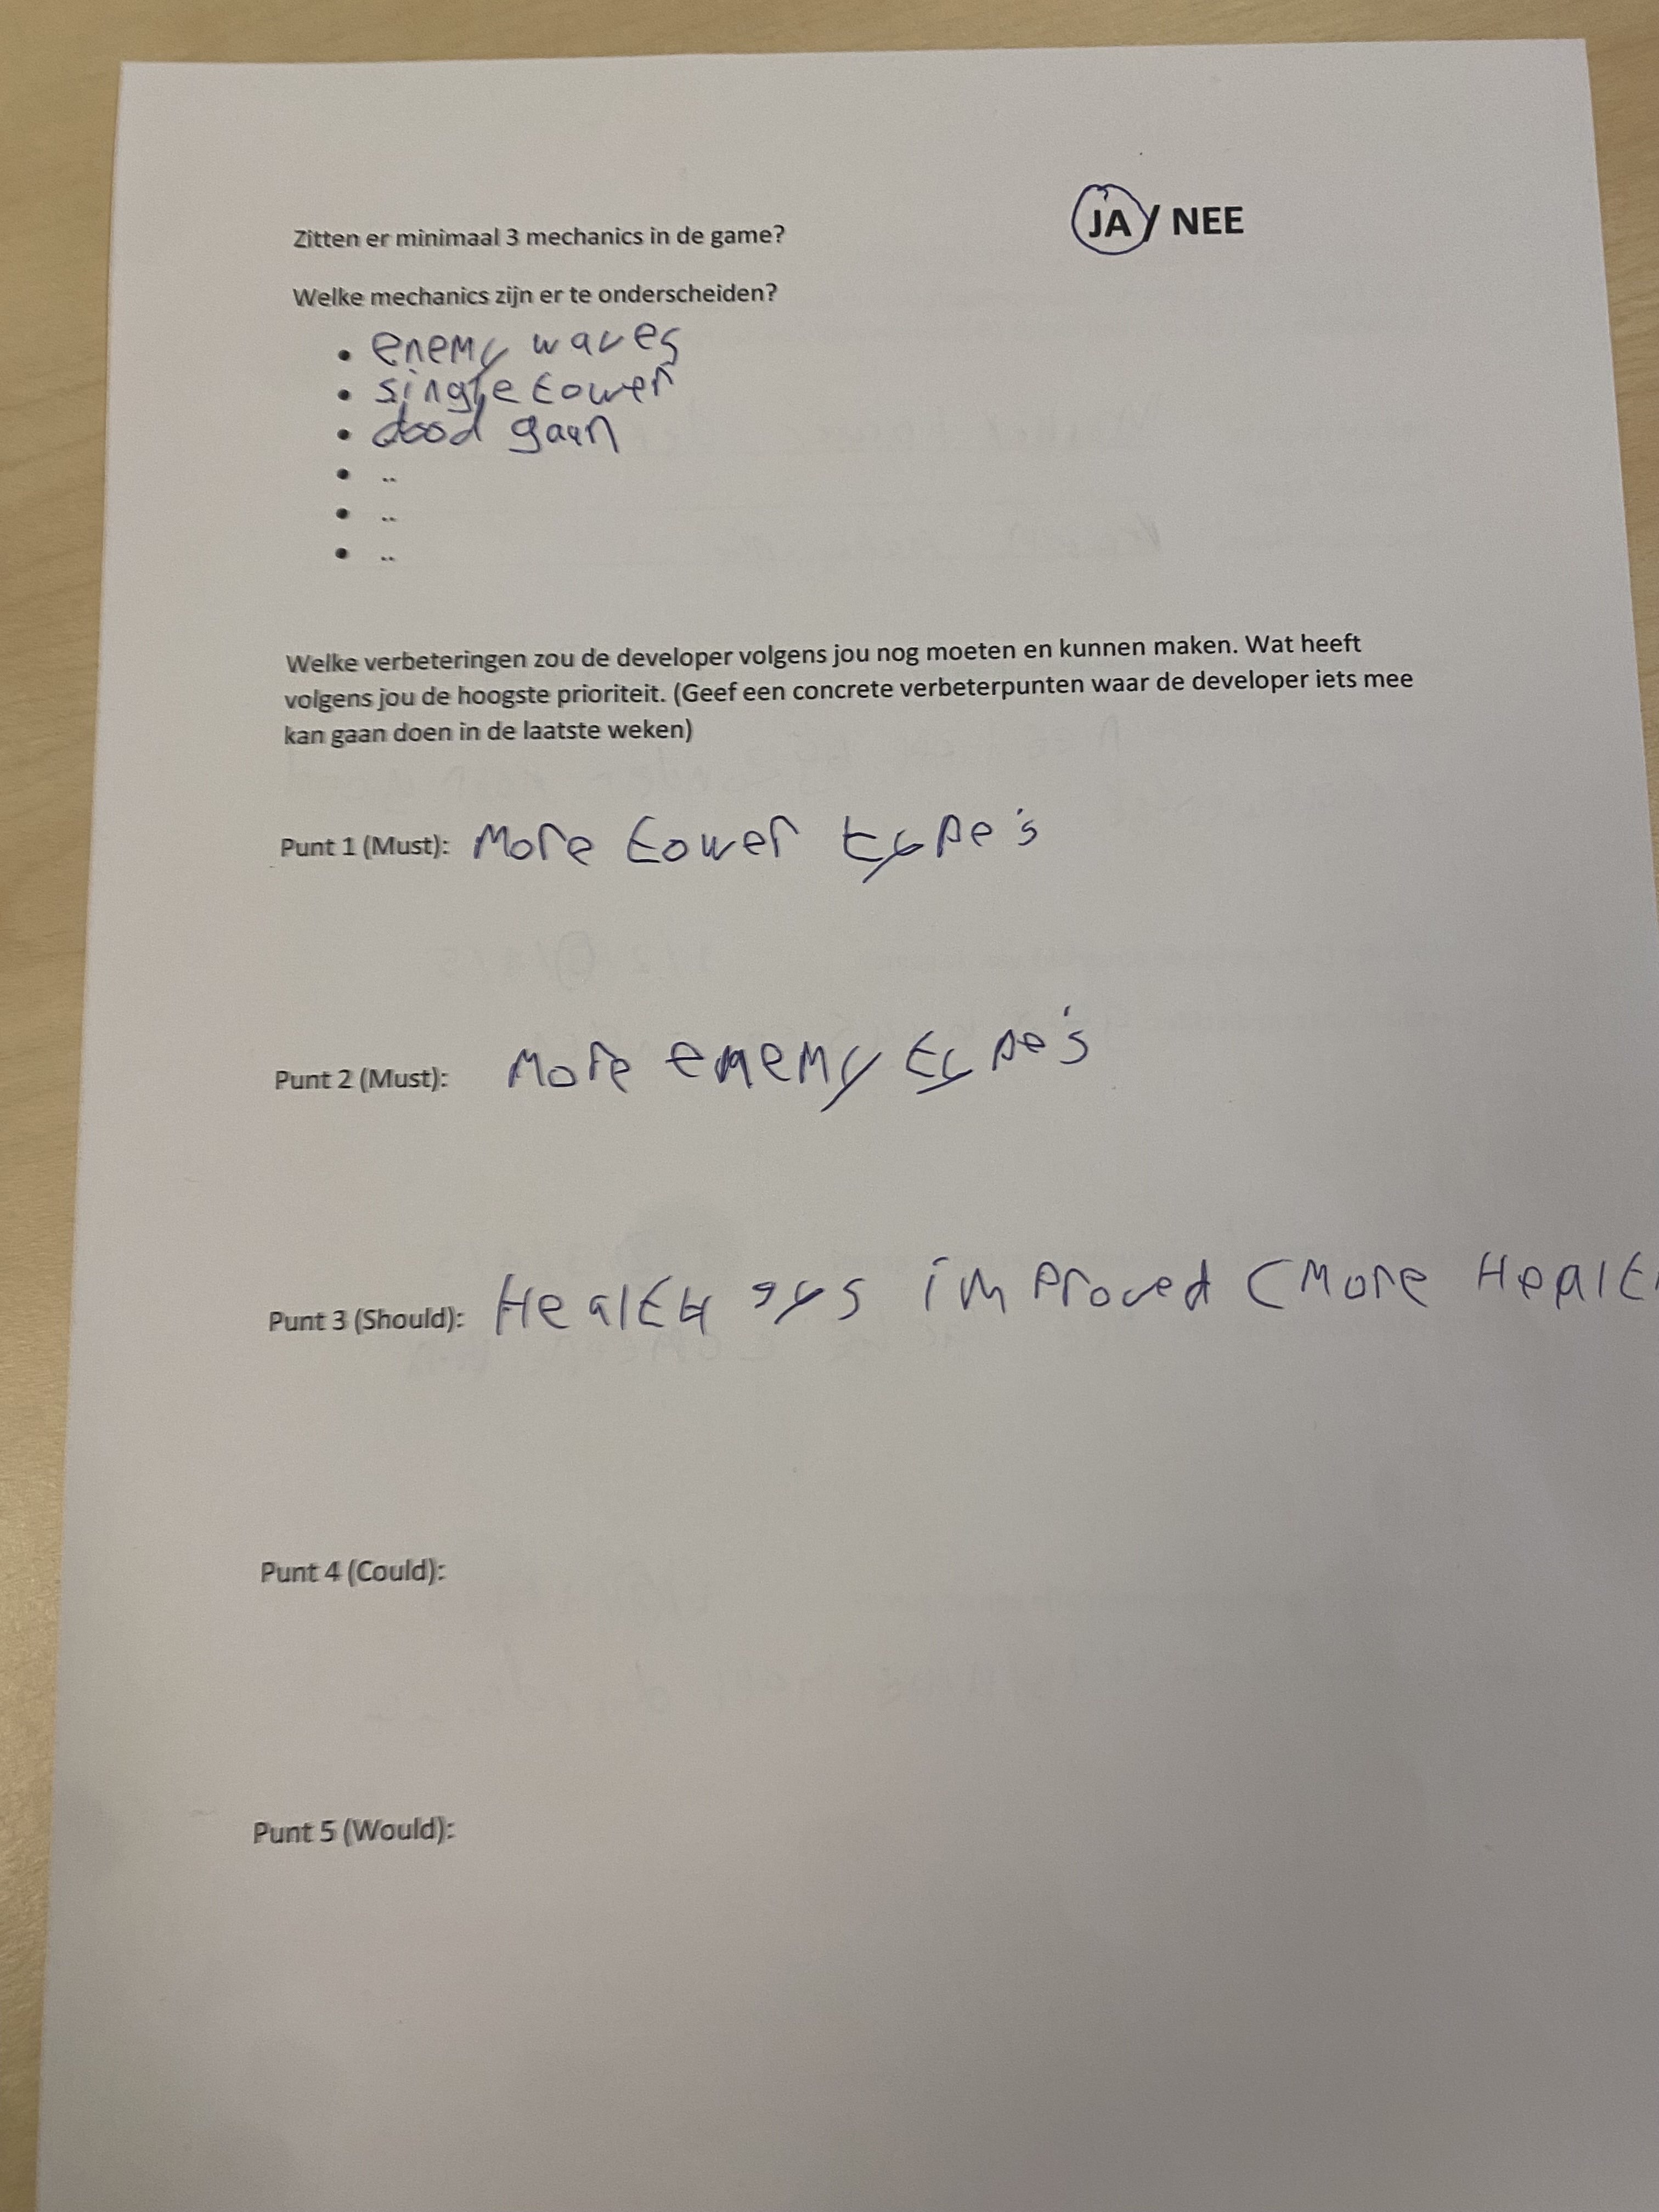 JA / NEE
Zitten er minimaal 3 mechanics in de game?
Welke mechanics zijn er te onderscheiden?
• enemy waves
• single tower
• dood gaan
• ..
• ..
• ..
Welke verbeteringen zou de developer volgens jou nog moeten en kunnen maken. Wat heeft
volgens jou de hoogste prioriteit. (Geef een concrete verbeterpunten waar de developer iets mee
kan gaan doen in de laatste weken)
Punt 1 (Must): More tower type's
Punt 2 (Must): More enemy type's
Punt 3 (Should): Health sys improved (More Healt
Punt 4 (Could):
Punt 5 (Would):